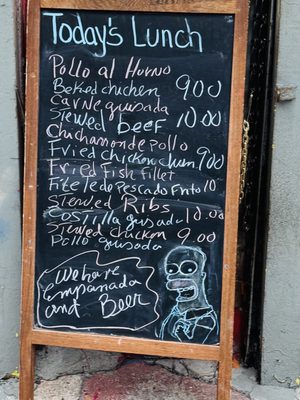 Today's Lunch
Pollo al Horno
Baked chicken 9.00
Carne guisada
Stewed beef 10.00
Chuchamonde pollo
Fried chicken chum 9.00
Fried Fish fillet
Filete de Pescado Frito 10
Stewed Ribs
Costilla guisada 10.00
Stewed chicken 9.00
Pollo guisada
We have
empanada
and Beer